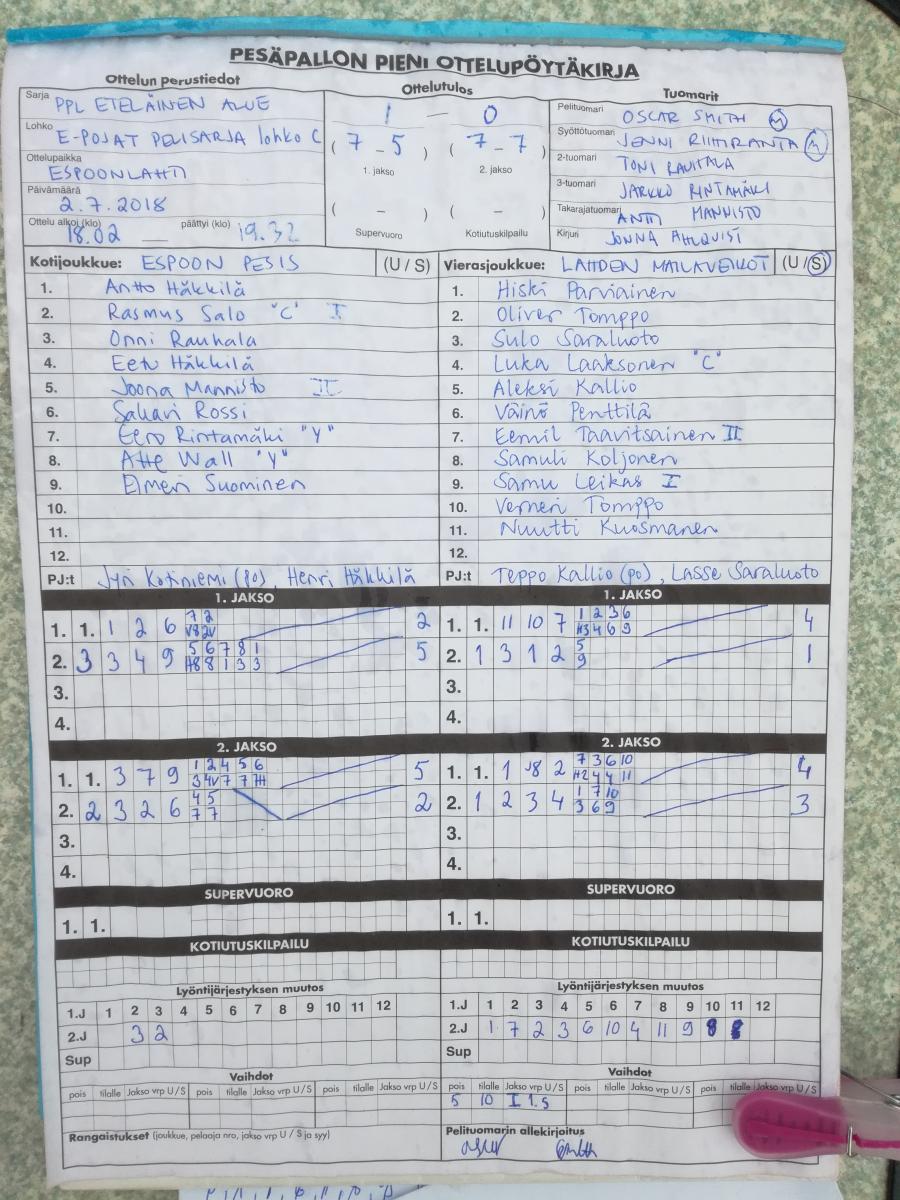 PESÄPALLON PIENI OTTELUPÖYTÄKIRJA
Ottelun perustiedot
Ottelutulos
Tuomarit
Sarja PPL ETELÄINEN ALUE
Lohko E-POJAT PELISARJA lohko C
Ottelupaikka ESPOONLAHTI
Päivämäärä 2.7.2018
Ottelu alkoi (klo) 18.02 — päättyi (klo) 19.32
1 — 0
( 7 - 5 ) ( 7 - 7 )
1. jakso 2. jakso
( - ) ( - )
Supervuoro Kotiutuskilpailu
Pelituomari OSCAR SMITH M
Syöttötuomari JENNI RIIHIRANTA M
2-tuomari TONI RAUTALA
3-tuomari JARKKO RINTAMÄKI
Takarajatuomari ANTTI MANNISTO
Kirjuri JONNA AHLQVIST
Kotijoukkue: ESPOON PESIS (U / S)
1. Antto Häkkilä
2. Rasmus Salo "C" I
3. Onni Rauhala
4. Eetu Häkkilä
5. Joona Mannisto II
6. Sakari Rossi
7. Eero Rintamäki "Y"
8. Atte Wall "Y"
9. Elmeri Suominen
10.
11.
12.
PJ:t Jyri Kotiniemi (po), Henri Häkkilä
Vierasjoukkue: LAHDEN MAILAVEIKOT (U / S)
1. Hiski Parviainen
2. Oliver Tomppo
3. Sulo Saraluoto
4. Luka Laaksonen "C"
5. Aleksi Kallio
6. Väinö Penttilä
7. Eemil Taavitsainen II
8. Samuli Koljonen
9. Samu Leikas I
10. Verneri Tomppo
11. Nuutti Kuosmanen
12.
PJ:t Teppo Kallio (po), Lasse Saraluoto
1. JAKSO
1. 1. 1 2 6 7 2 2
V8 2V
2. 3 3 4 9 5 6 7 8 1 5
H8 8 1 3 3
3.
4.
1. JAKSO
1. 1. 11 10 7 1 2 3 6 4
H3 4 6 9
2. 1 3 1 2 5 1
9
3.
4.
2. JAKSO
1. 1. 3 7 9 1 2 4 5 6 5
3 4V 7 7 7H
2. 2 3 2 6 4 5 2
7 7
3.
4.
2. JAKSO
1. 1. 1 8 2 7 3 6 10 4
H2 4 4 11
2. 1 2 3 4 1 7 10 3
3 6 9
3.
4.
SUPERVUORO
1. 1.
SUPERVUORO
1. 1.
KOTIUTUSKILPAILU
KOTIUTUSKILPAILU
Lyöntijärjestyksen muutos
1.J 1 2 3 4 5 6 7 8 9 10 11 12
2.J 3 2
Sup
Lyöntijärjestyksen muutos
1.J 1 2 3 4 5 6 7 8 9 10 11 12
2.J 1 7 2 3 6 10 4 11 9 8
Sup
Vaihdot
pois tilalle Jakso vrp U / S pois tilalle Jakso vrp U / S pois tilalle Jakso vrp U / S
Vaihdot
pois tilalle Jakso vrp U / S pois tilalle Jakso vrp U / S pois tilalle Jakso vrp U / S
5 10 I 1.S
Rangaistukset (joukkue, pelaaja nro, jakso vrp U / S ja syy)
Pelituomarin allekirjoitus